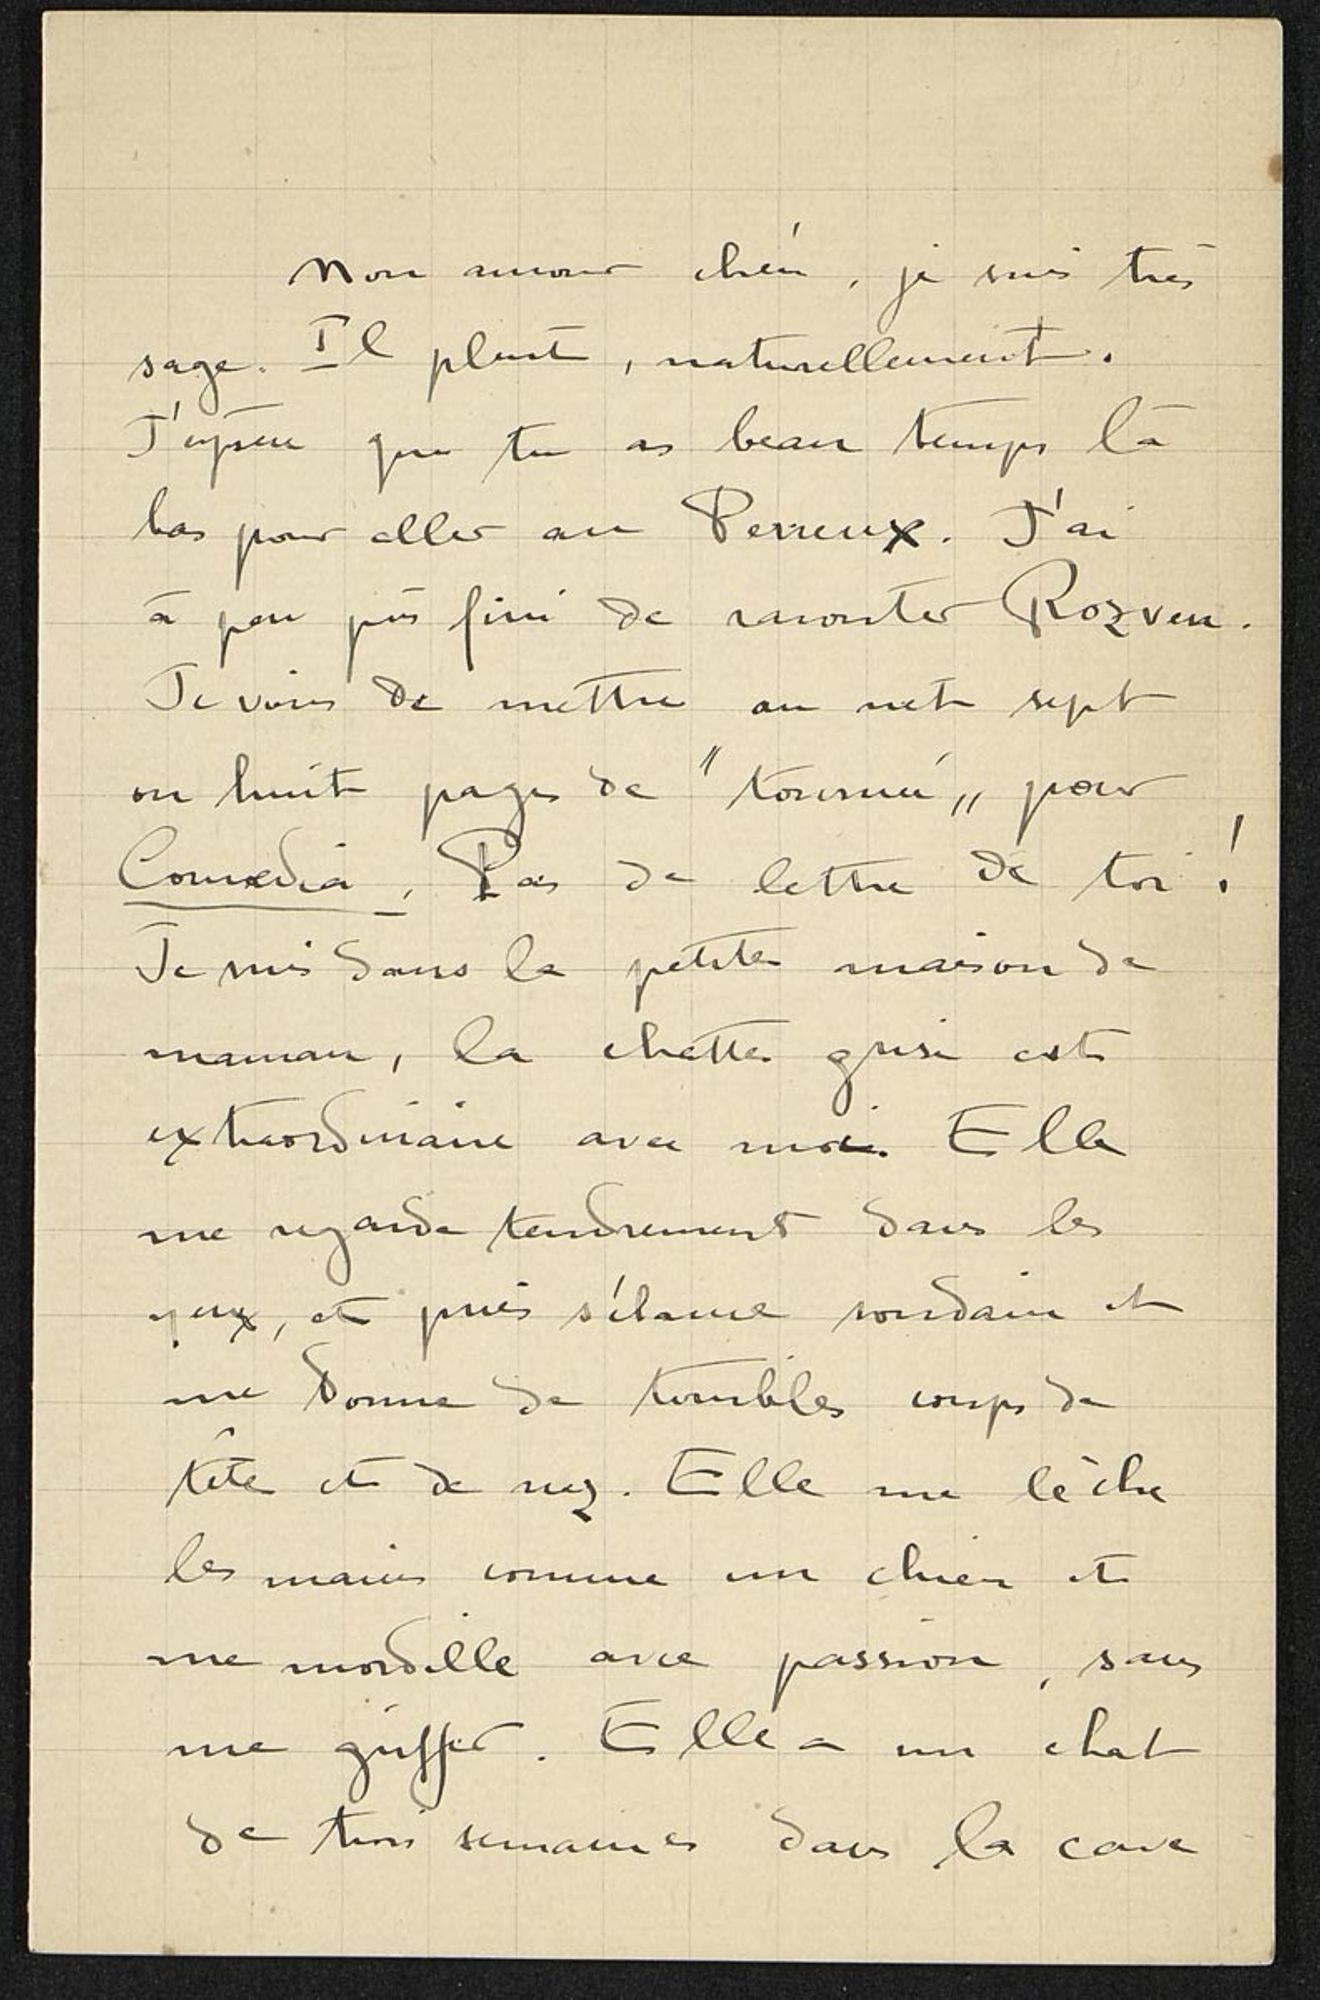 Mon amour chéri, je suis très
sage. Il pleut, naturellement.
J'espère que tu as beau temps là
bas pour aller au Perreux. J'ai
à peu près fini de raconter Rozven.
Je viens de mettre au net sept
ou huit pages de "tournée" pour
Comœdia. Pas de lettre de toi !
Je suis dans la petite maison de
maman, la chatte grise est
extraordinaire avec moi. Elle
me regarde tendrement dans les
yeux, et puis s'élance soudain et
me donne de terribles coups de
tête et de nez. Elle me lèche
les mains comme un chien et
me mordille avec passion, sans
me griffer. Elle a un chat
de trois semaines dans la cave